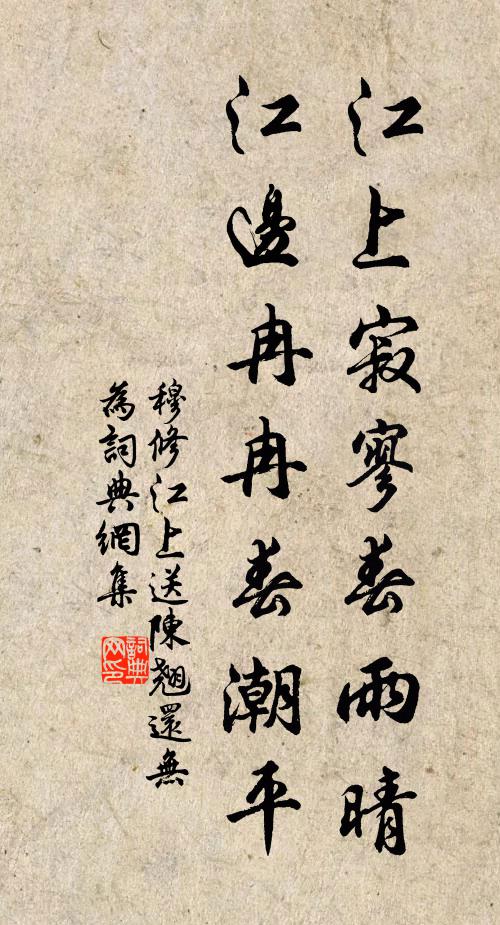 江上寂寥春雨晴
江邊冉冉春潮平
穆修江上送陳翹還無
為詞典網集
詞典網印